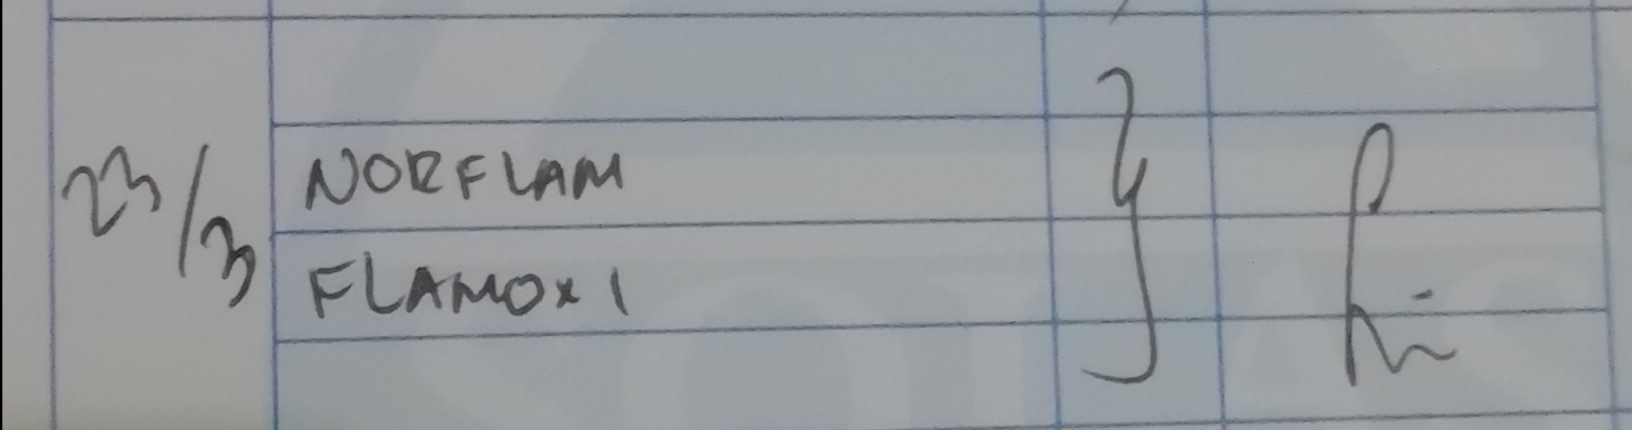 23/3 NORFLAM
FLAMOXI